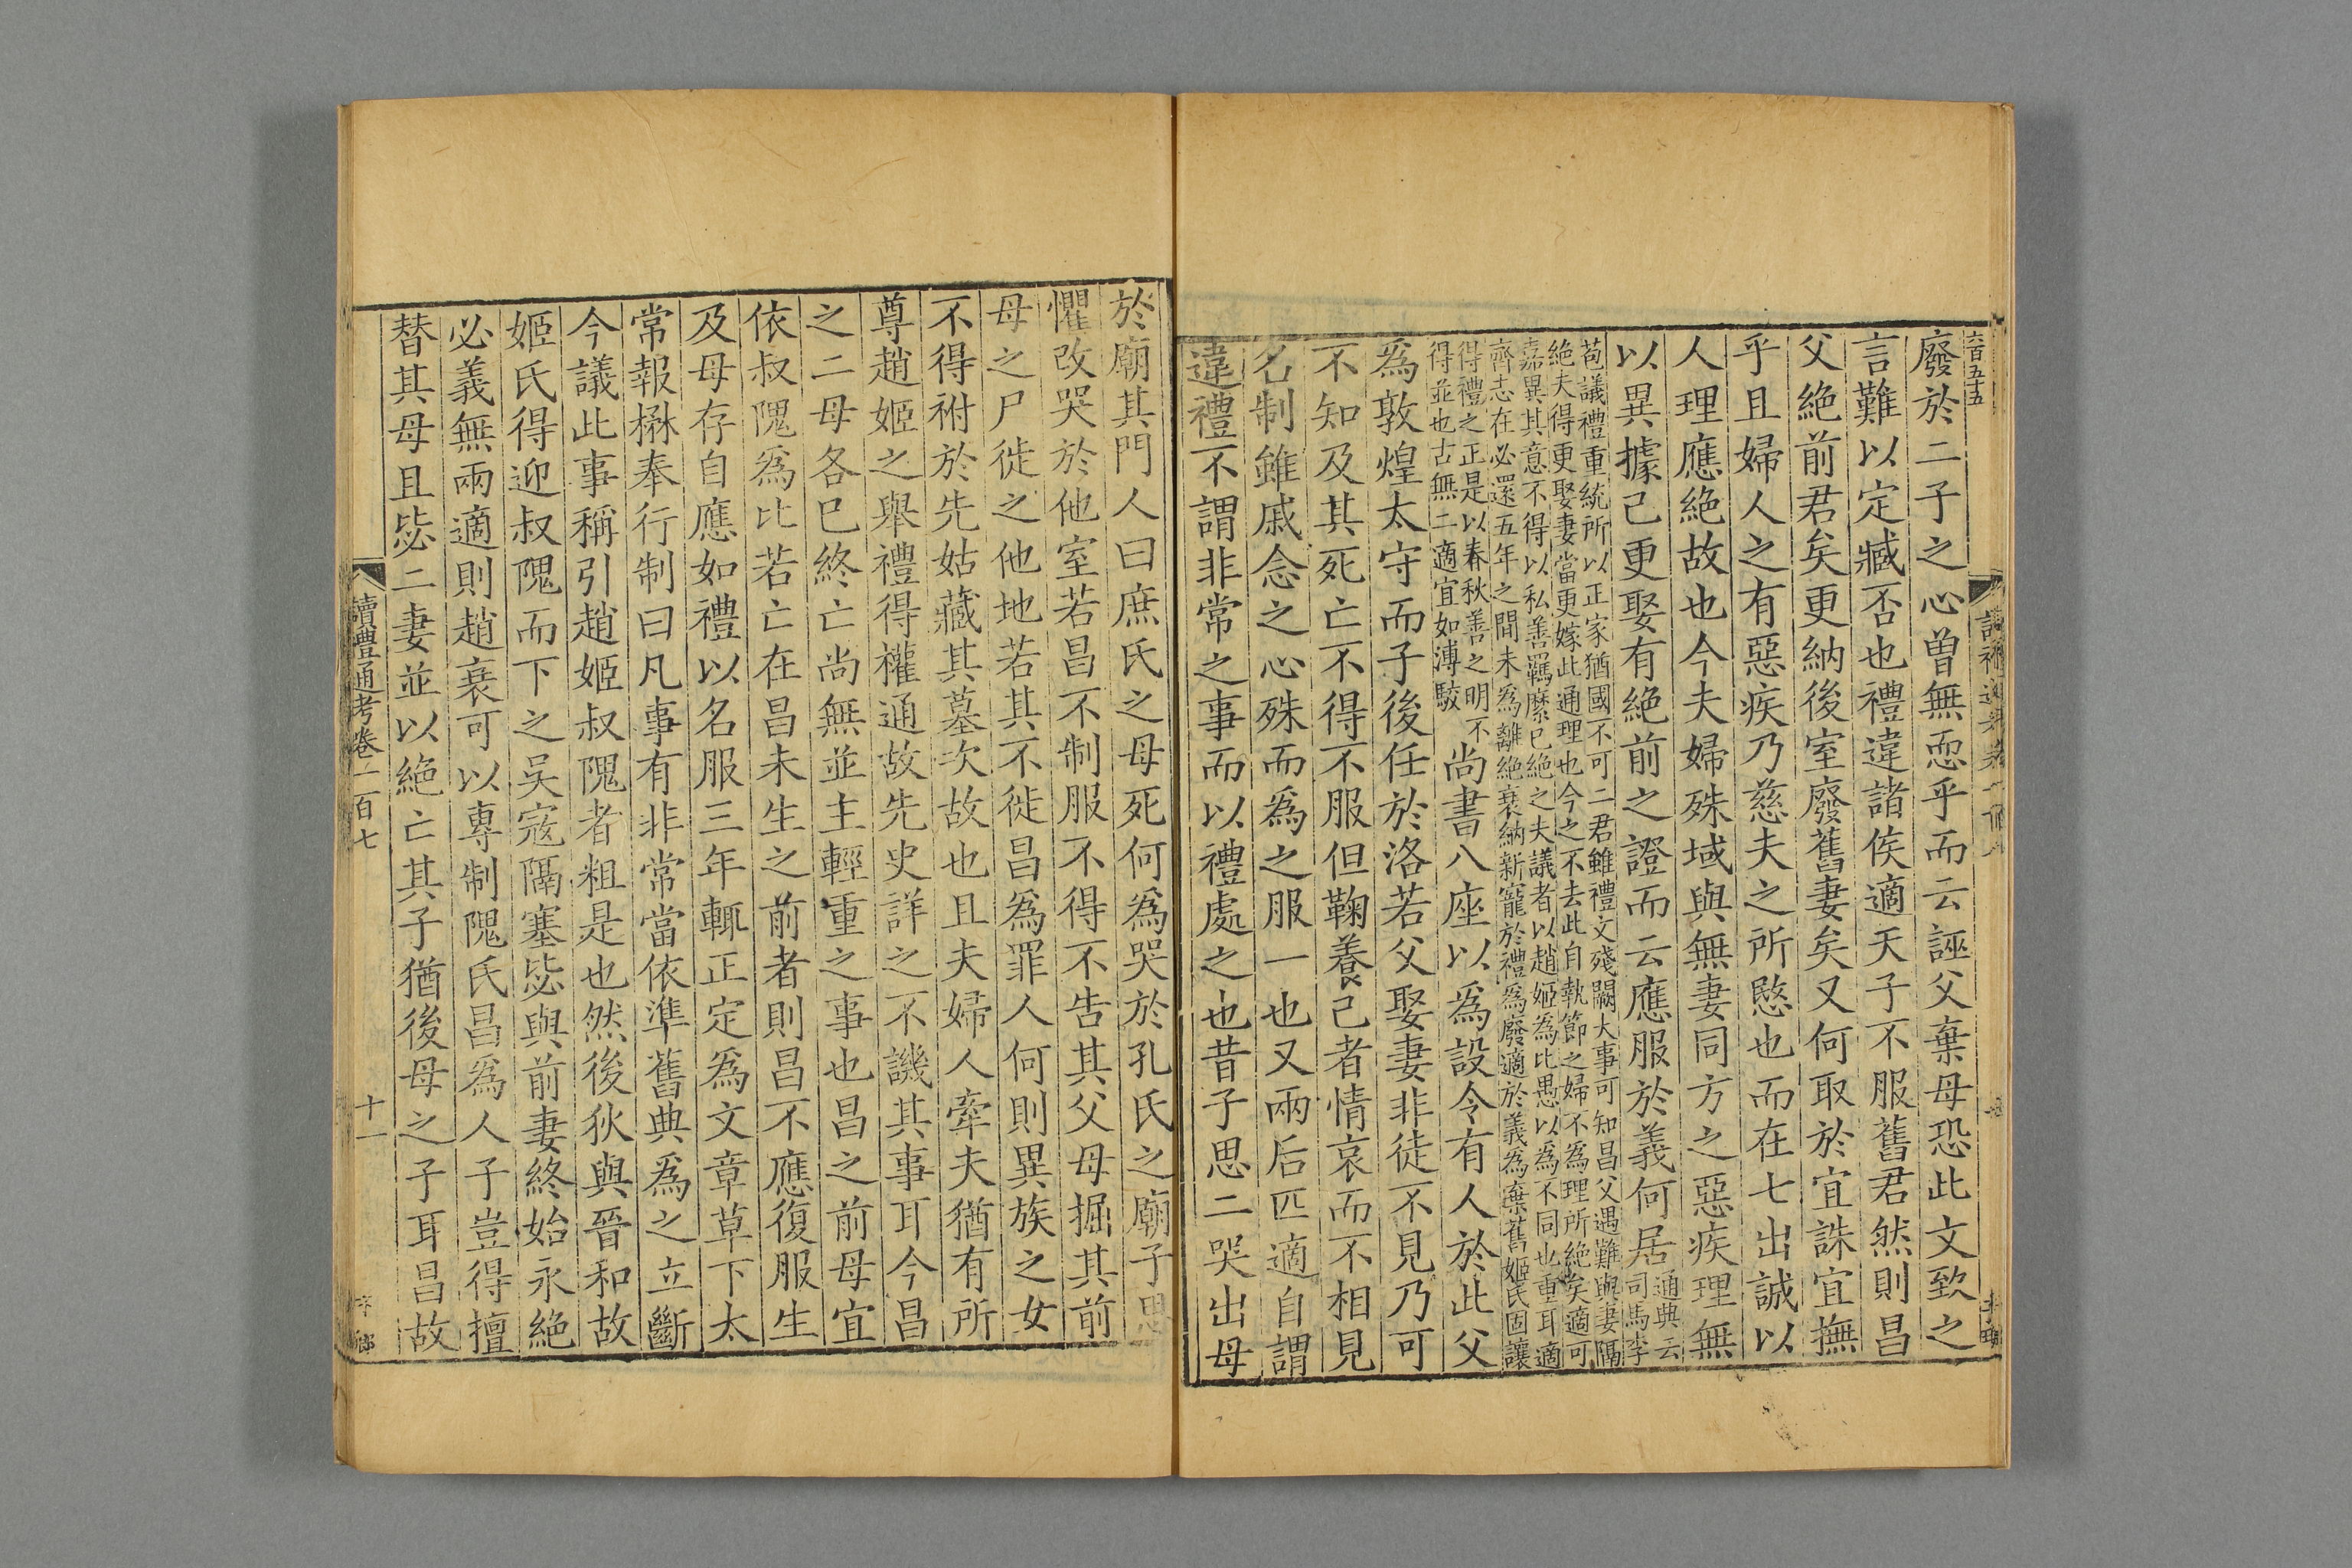 六百五十五
廢於二子之心曾無恧乎而云誣父棄母恐此文致之
言難以定臧否也禮違諸侯適天子不服舊君然則昌
父絶前君矣更納後室廢舊妻矣又何取於宜誅宜撫
乎且婦人之有惡疾乃慈夫之所愍也而在七出誠以
人理應絶故也今夫婦殊域與無妻同方之惡疾理無
以異據己更娶有絶前之證而云應服於義何居通典云司馬李
苞議禮重統所以正家猶國不可二君雖禮文殘闕大事可知昌父遇難與妻隔
絶夫得更娶妻當更嫁此通理也今之不去此自執節之婦不為理所絶矣適可
嘉異其意不得以私善羈縻已絶之夫議者以趙姬為比愚以為不同也重耳適
齊志在必還五年之間未為離絶衰納新寵於禮為廢適於義為棄舊姬氏固讓
得禮之正是以春秋善之明不得並也古無二適宜如溥駮尚書八座以為設令有人於此父
爲敦煌太守而子後任於洛若父娶妻非徒不見乃可
不知及其死亡不得不服但鞠養己者情哀而不相見
名制雖戚念之心殊而爲之服一也又兩后匹適自謂
違禮不謂非常之事而以禮處之也昔子思二哭出母
於廟其門人曰庶氏之母死何爲哭於孔氏之廟子思
懼改哭於他室若昌不制服不得不告其父母掘其前
母之尸徙之他地若其不徙昌爲罪人何則異族之女
不得祔於先姑藏其墓次故也且夫婦人牽夫猶有所
尊趙姬之舉禮得權通故先史詳之不譏其事耳今昌
之二母各已終亡尚無並主輕重之事也昌之前母宜
依叔隗爲比若亡在昌未生之前者則昌不應復服生
及母存自應如禮以名服三年輒正定爲文章草下太
常報楙奉行制曰凡事有非常當依準舊典爲之立斷
今議此事稱引趙姬叔隗者粗是也然後狄與晉和故
姬氏得迎叔隗而下之吳寇隔塞毖與前妻終始永絶
必義無兩適則趙衰可以專制隗氏昌爲人子豈得擅
替其母且毖二妻並以絶亡其子猶後母之子耳昌故
讀禮通考卷二百七
十一